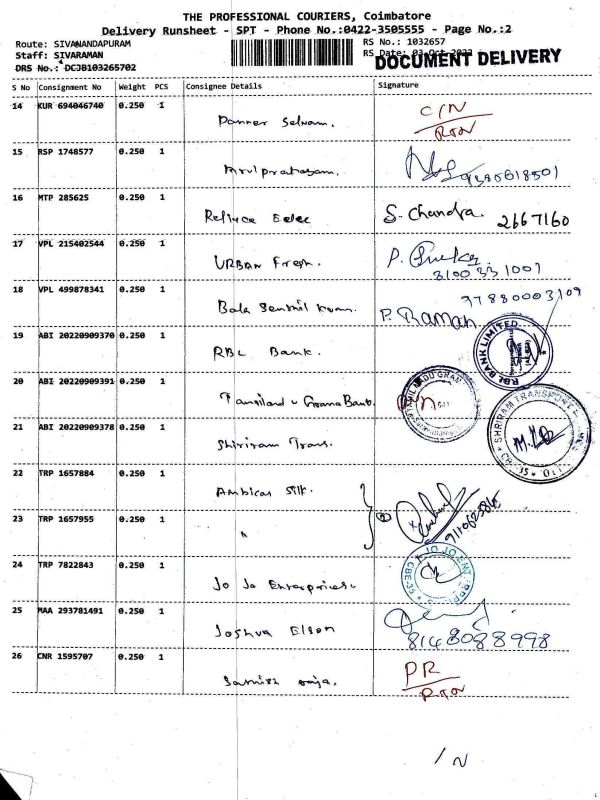 THE PROFESSIONAL COURIERS, Coimbatore
Delivery Runsheet - SPT - Phone No.:0422-3505555 - Page No.:2
Route: SIVANANDAPURAM
RS No.: 1032657
Staff: SIVARAMAN
RS Date: 03-Oct-2022
DOCUMENT DELIVERY
DRS No.: DCJB103265702
S No Consignment No Weight PCS Consignee Details Signature
14 KUR 694046740 0.250 1 Ponner Selvam. C/N
RTN
15 RSP 1748577 0.250 1
16 MTP 285625 0.250 1 S. Chandra. 2667160
17 VPL 215402544 0.250 1 URBAN Fresh.
8100331007
18 VPL 499878341 0.250 1 Bala Senthil P. Raman 97880003109
19 ABI 20220909370 0.250 1 RBL Bank. RBL BANK LIMITED
20 ABI 20220909391 0.250 1 Grama Bank.
21 ABI 20220909378 0.250 1 Shriram Trans. SHRIRAM TRANSPORT
22 TRP 1657884 0.250 1 Ambicas Silk.
23 TRP 1657955 0.250 1 "
24 TRP 7822843 0.250 1 Jo Jo Enterprises
25 MAA 293781491 0.250 1 Joshua Elson
8143088998
26 CNR 1595707 0.250 1 Sathish raja. PR
RTN
/ N